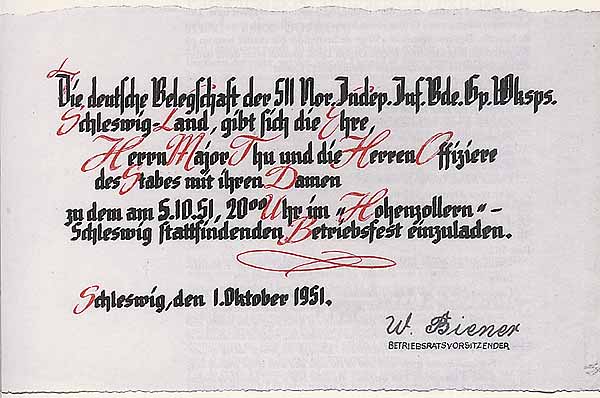 Die deutsche Belegschaft der 511 Nor. Indep. Inf. Bde. Gp. Wksps.
Schleswig-Land, gibt sich die Ehre,
Herrn Major Thu und die Herren Offiziere
des Stabes mit ihren Damen
zu dem am 5.10.51, 20⁰⁰ Uhr im „Hohenzollern"–
Schleswig stattfindenden Betriebsfest einzuladen.
Schleswig, den 1. Oktober 1951.
W. Biener
BETRIEBSRATSVORSITZENDER